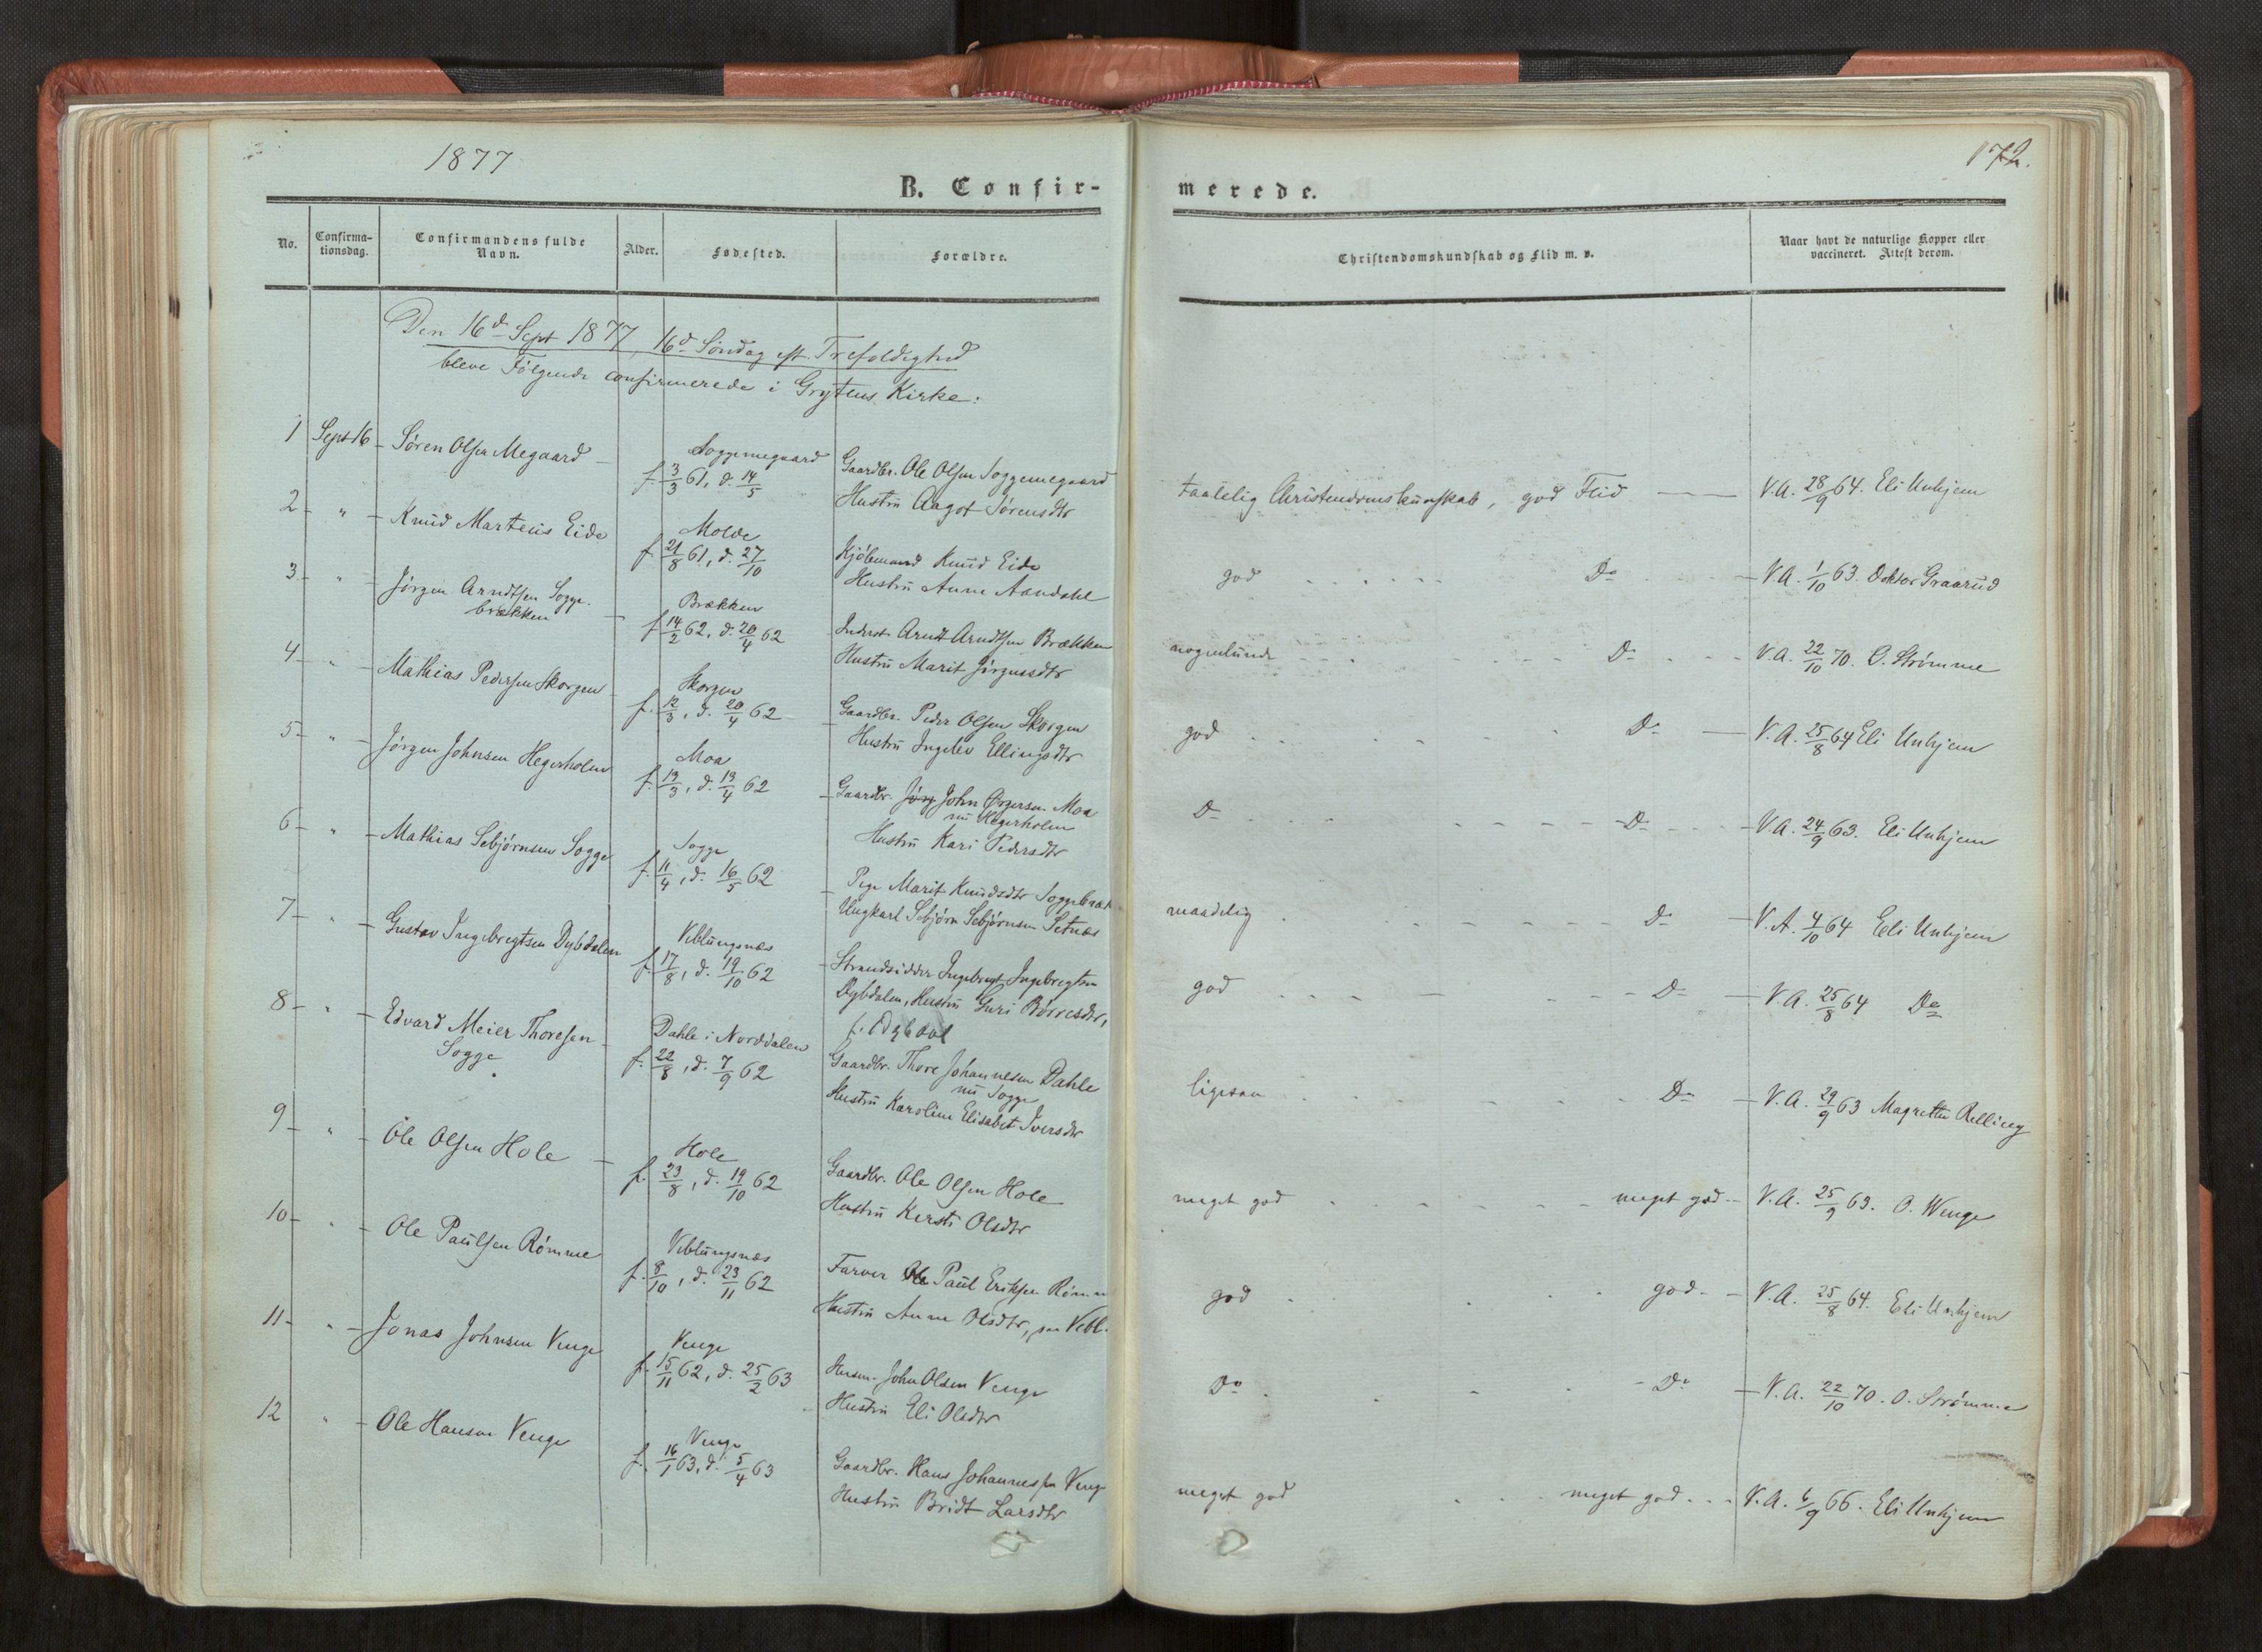 1877
172.
B. Confir-
merede.
No.
Confirma-
tionsdag.
Confirmandens fulde
Navn.
Alder.
Fødested.
Forældre.
Christendomskundskab og Flid m. v.
Naar havt de naturlige Kopper eller
vaccineret. Attest derom.
Den 16d Sept 1877, 16d Søndag eft. Trefoldighed
bleve Følgende confirmerede i Gryttens Kirke:
1 Sept 16 Søren Olsen Megaard
Soggemegaard
f. 3/3 61, d. 14/5
Gaardbr. Ole Olsen Soggemegaard
Hustru Aagot Sørensdtr
taalelig Christendomskundskab, god Flid
V.A. 28/9 64. Eli Unhjem
2 " Knud Marteus Eide
Molde
f. 21/8 61, d. 27/10
Kjøbmand Knud Eide
Hustru Anne Aandahl
god Do
V.A. 1/10 63. Doktor Graarud
3 " Jørgen Arndtsen Sogge-
brækken
Brækken
f. 14/2 62, d. 20/4 62
Inderst Arndt Arndtsen Brækken
Hustru Marit Jørgensdtr
nogenlunde Do
V.A. 22/10 70. O. Strømme
4 " Mathias Pedersen Skorgen
Skorgen
f. 12/3, d. 20/4 62
Gaardbr. Peder Olsen Skorgen
Hustru Ingelev Ellingsdtr
god Do
V.A. 25/8 64 Eli Unhjem
5 " Jørgen Johnsen Hegerholm
Moa
f. 19/3, d. 13/4 62
Gaardbr. Jørg John Ørgersen Moa
nu Hegerholm
Hustru Kari Pedersdtr
Do Do
V.A. 24/9 63. Eli Unhjem
6 " Mathias Sebjørnsen Sogge
Sogge
f. 11/4, d. 16/5 62
Pige Marit Knudsdtr Soggebræk
Ungkarl Sebjørn Sebjørnsen Setnæs
maadelig Do
V.A. 4/10 64 Eli Unhjem
7 " Gustav Ingebregtsen Dybdalen
Veblungsnæs
f. 17/8, d. 19/10 62
Strandsidder Ingebregt Ingebregtsen
Dybdalen, Hustru Guri Børresdtr,
god Do
V.A. 25/8 64 Do
8 " Edvard Meier Thoresen
Sogge
Dahle i Norddalen
f. 22/8, d. 7/9 62
Gaardbr. Thore Johannesen Dahle
nu Sogge
Hustru Karoline Elisabet Iversdtr
ligesaa Do
V.A. 29/9 63 Magrethe Relling
9 " Ole Olsen Hole
Hole
f. 23/8, d. 19/10 62
Gaardbr. Ole Olsen Hole
Hustru Kersti Olsdtr
meget god meget god
V.A. 25/9 63. O. Wenge
10 " Ole Paulsen Rømme
Veblungsnæs
f. 8/10, d. 23/11 62
Farver Ole Paul Eriksen Rømme
Hustru Anne Olsdtr, paa Vebl.
god god
V.A. 25/8 64. Eli Unhjem
11 " Jonas Johnsen Venge
Venge
f. 15/11 62, d. 25/2 63
Husm. John Olsen Venge
Hustru Eli Olsdtr
Do Do
V.A. 22/10 70. O. Strømme
12 " Ole Hansen Venge
Venge
f. 16/1 63, d. 5/4 63
Gaardbr. Hans Johannessen Venge
Hustru Bridt Larsdtr
meget god meget god
V.A. 6/9 66. Eli Unhjem